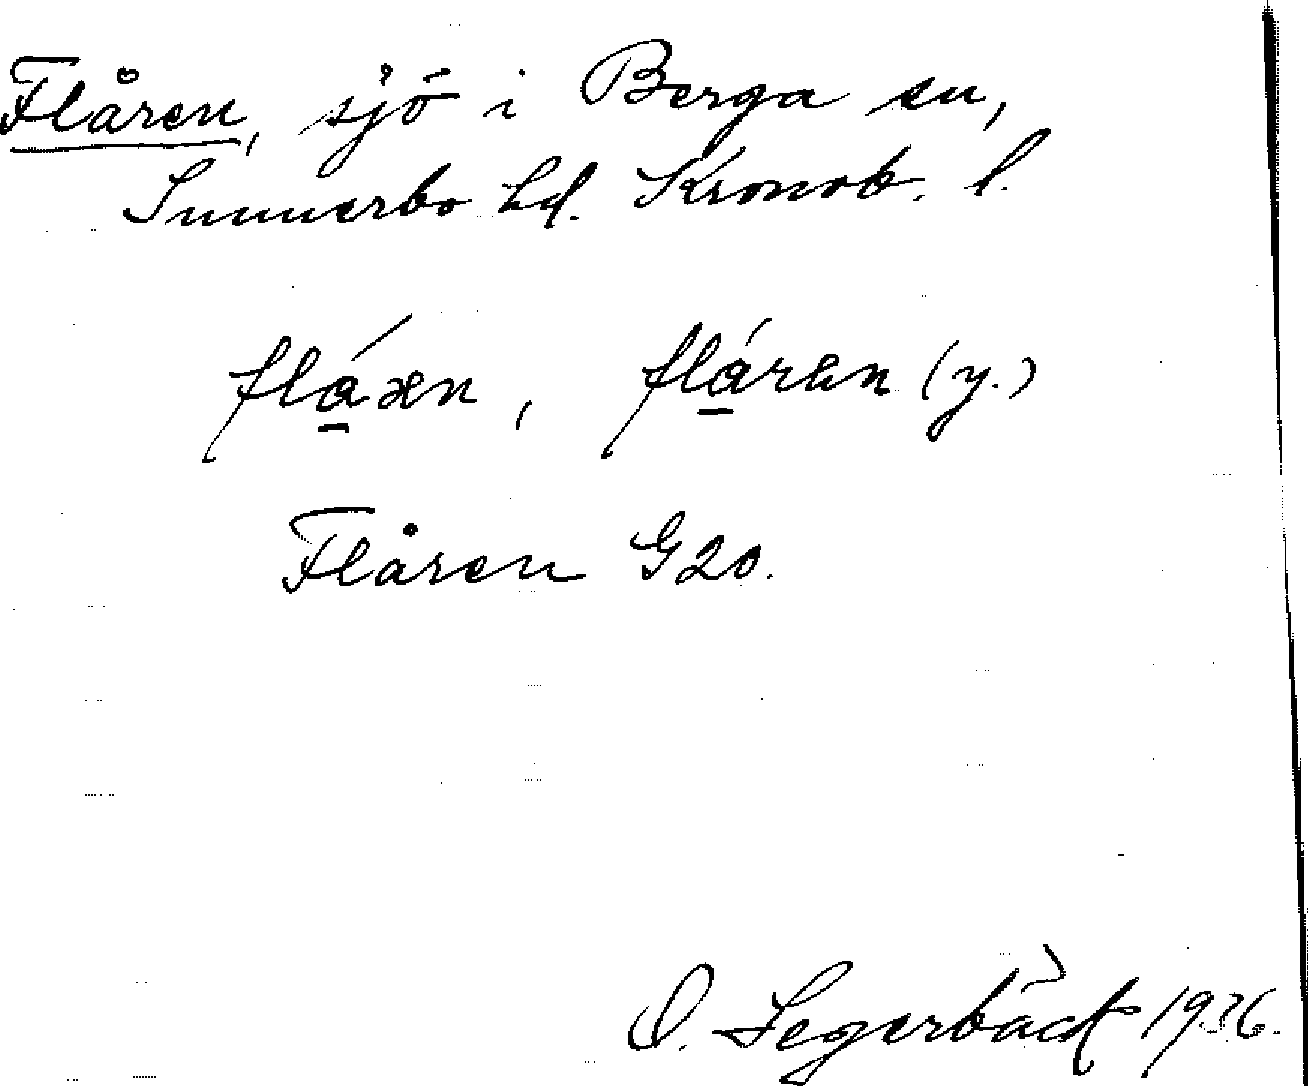 Flåren, sjö i Berga sn,
Sunnerbo hd. Kronob. l.
flá̱æn, flá̱ræn (y.)
Flåren G20.
O. Segerbäck 1936.